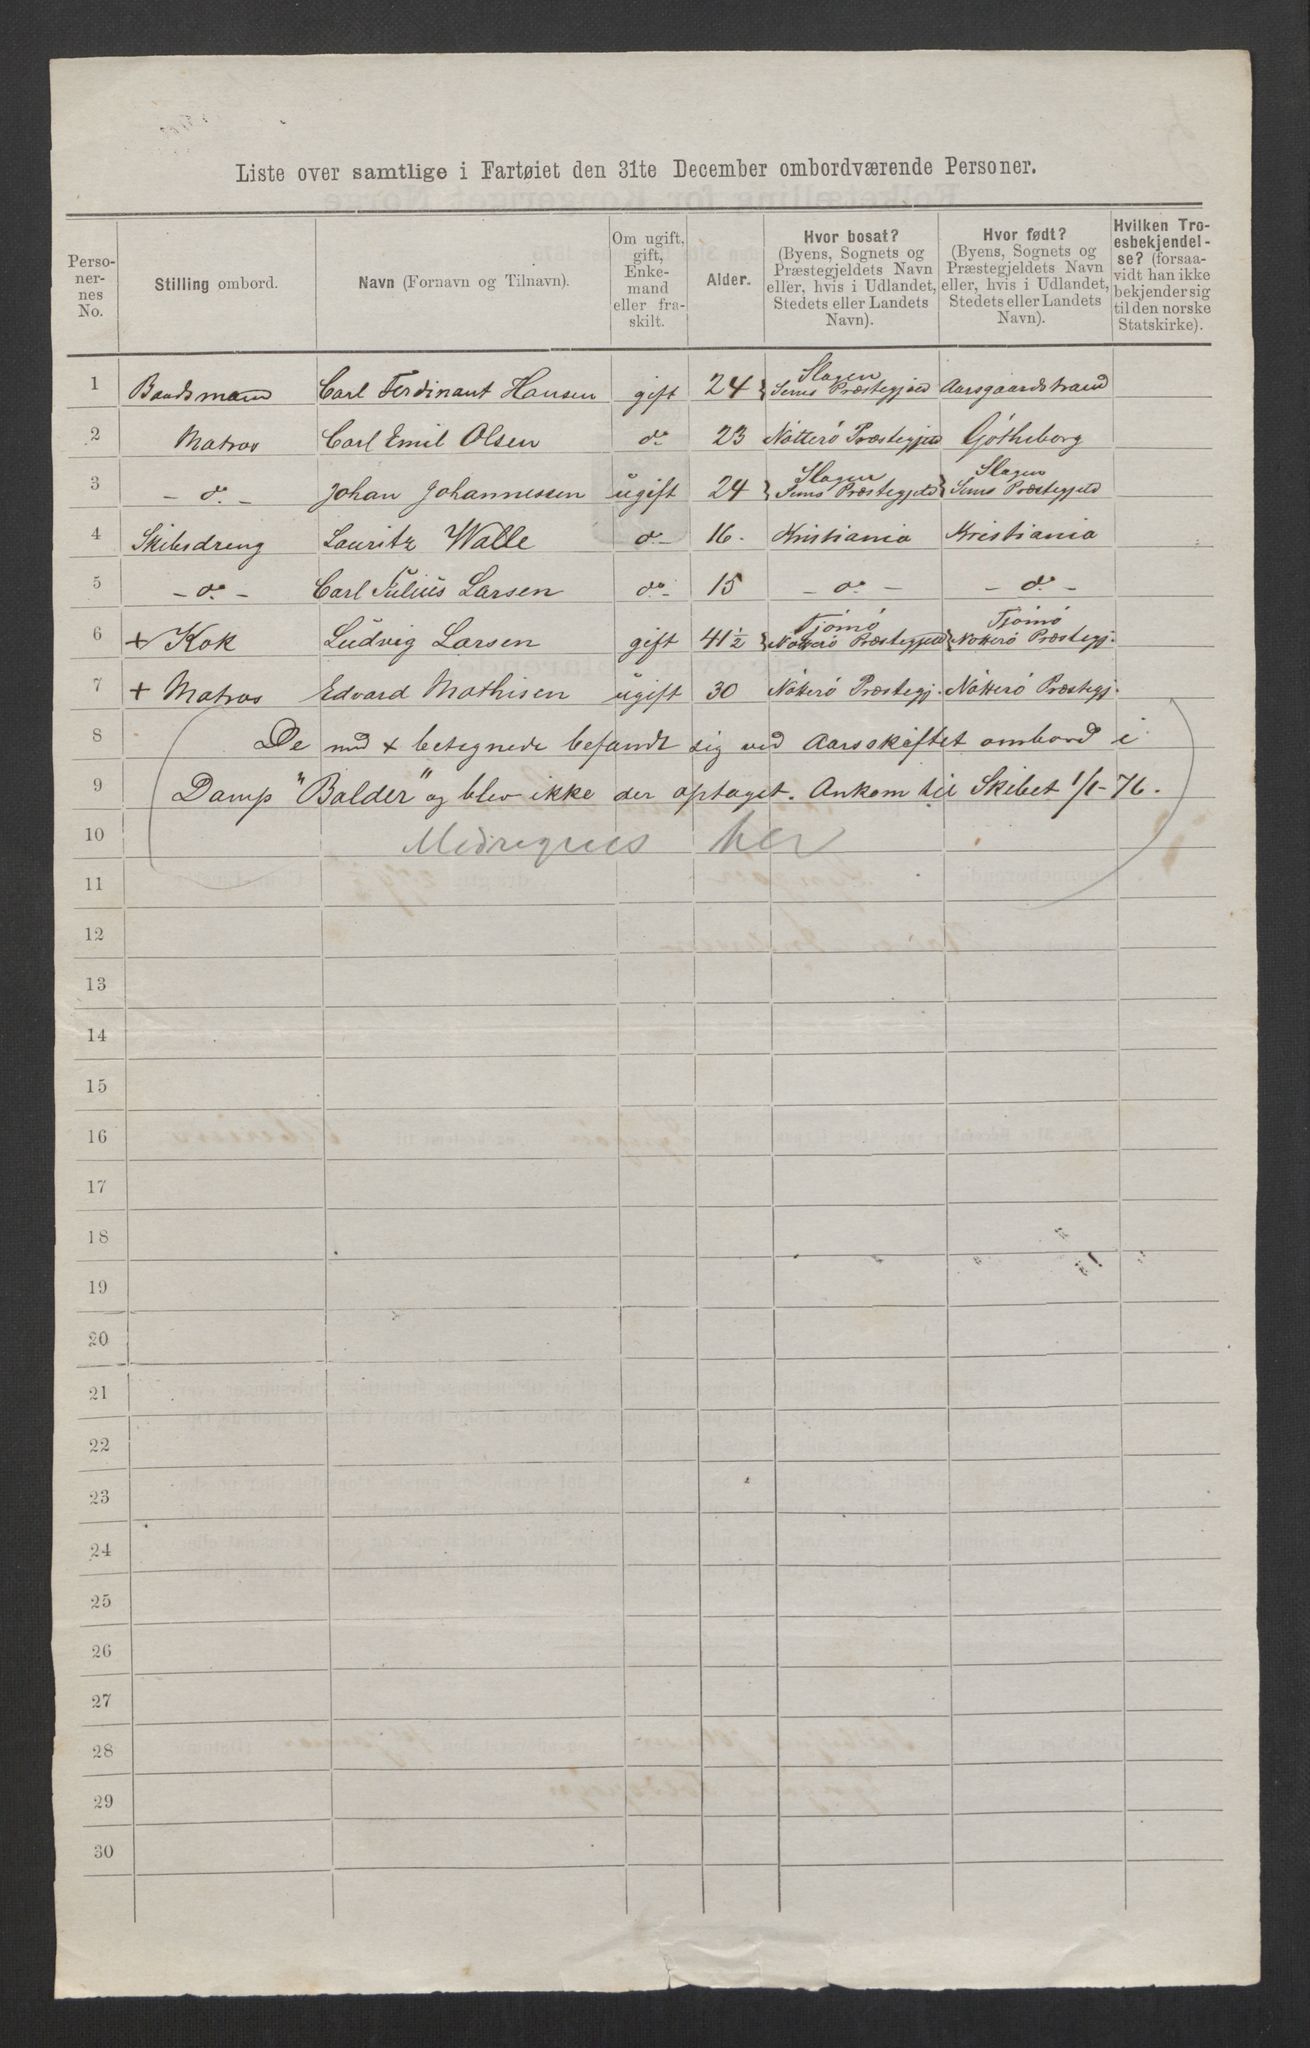 Liste over samtlige i Fartøiet den 31te December ombordværende Personer.
Personernes No. | Stilling ombord. | Navn (Fornavn og Tilnavn). | Om ugift, gift, Enkemand eller fraskilt. | Alder. | Hvor bosat? (Byens, Sognets og Præstegjeldets Navn eller, hvis i Udlandet, Stedets eller Landets Navn). | Hvor født? (Byens, Sognets og Præstegjeldets Navn eller, hvis i Udlandet, Stedets eller Landets Navn). | Hvilken Troesbekjendelse? (forsaavidt han ikke bekjender sig til den norske Statskirke).
1 | Baadsmand | Carl Ferdinant Hansen | gift | 24 | Slagen Sems Præstegjeld | Aarsgaardstrand
2 | Matros | Carl Emil Olsen | do | 23 | Nötterö Præstegjeld | Götheborg
3 | - do - | Johan Johannessen | ugift | 24 | Slagen Sems Præstegjeld | Slagen Sems Præstegjeld
4 | Skibsdreng | Lauritz Walle | do - | 16. | Kristiania | Kristiania
5 | - do - | Carl Julius Larsen | do - | 15 | - do - | - do -
6 | + Kok | Ludvig Larsen | gift | 41 1/2 | Tjömö Nötterö Præstegjeld | Tjömö Nötterö Præstegj.
7 | + Matros | Edvard Mathisen | ugift | 30 | Nötterö Præstegj. | Nötterö Præstegj.
8 De med + betegnede befandt sig ved Aarsskiftet ombord i
9 Damp "Balder" og blev ikke der optaget. Ankom til Skibet 1/1-76.
10 Medregnes her
11
12
13
14
15
16
17
18
19
20
21
22
23
24
25
26
27
28
29
30